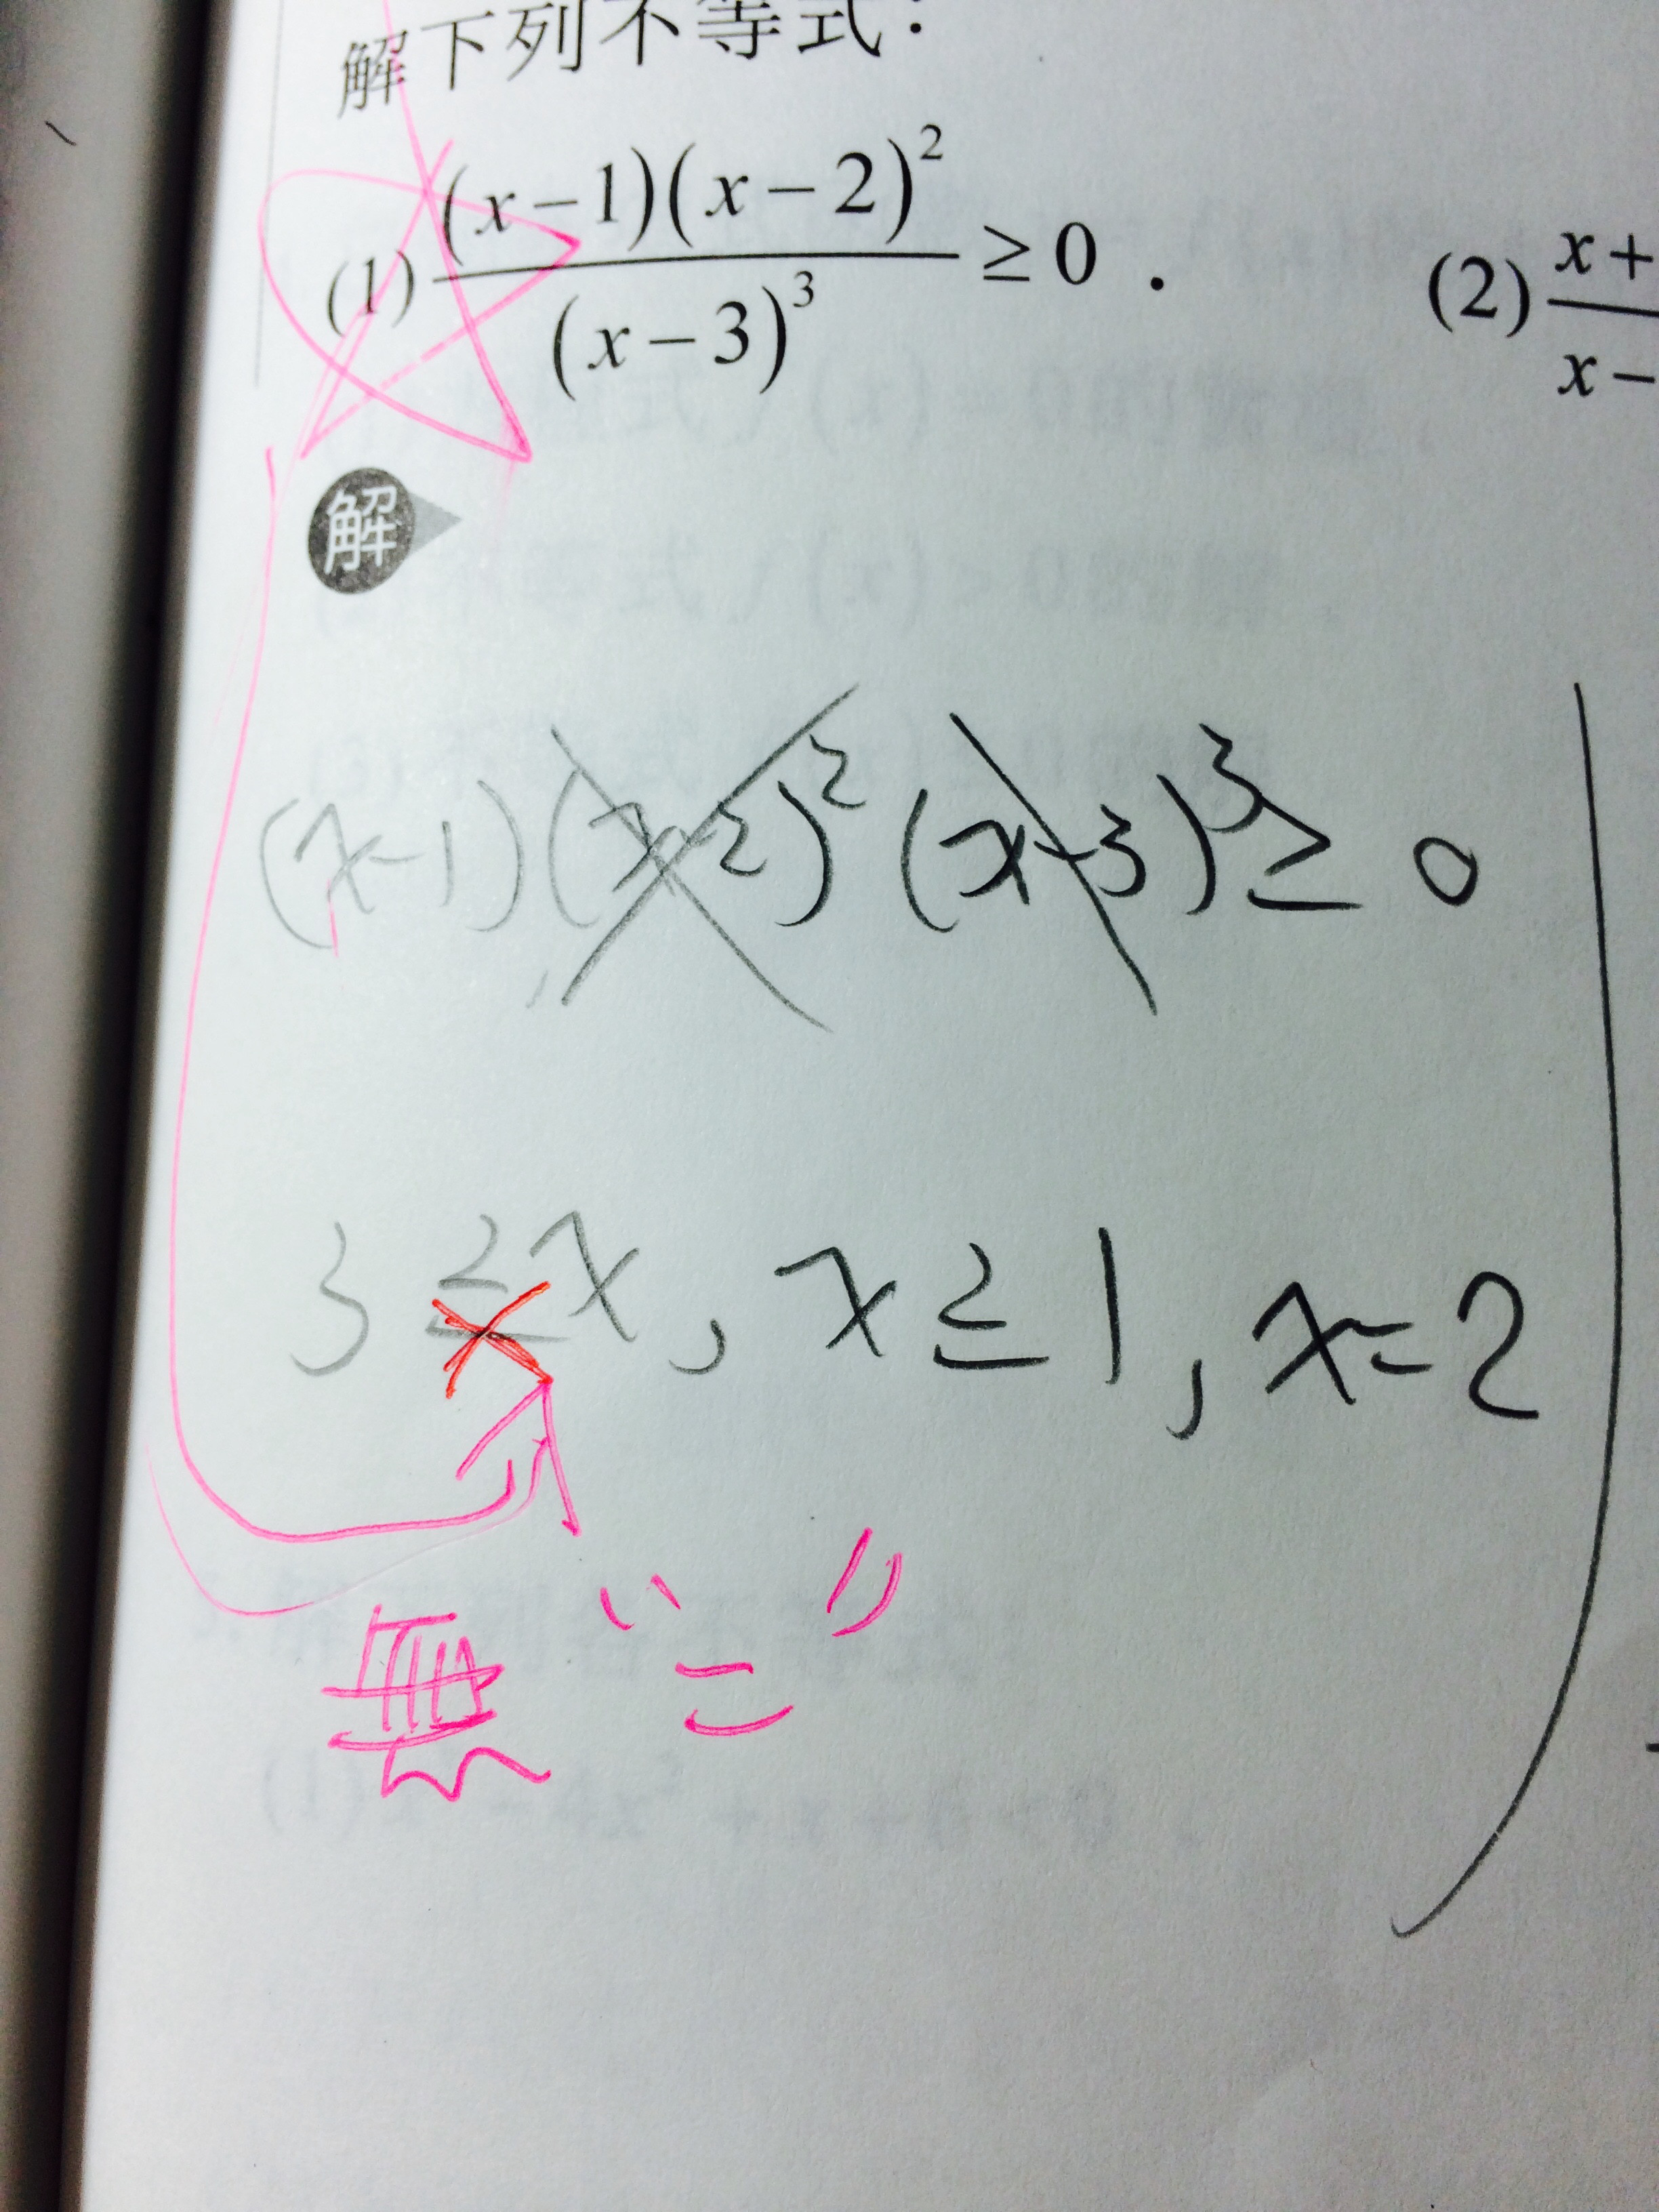 解下列不等式：
(1) (x-1)(x-2)² / (x-3)³ ≥ 0．
(2) x+ / x-
解
(x-1)(x-2)²(x-3)³ ≥ 0
3 ≤ x , x ≤ 1 , x=2
無 "="